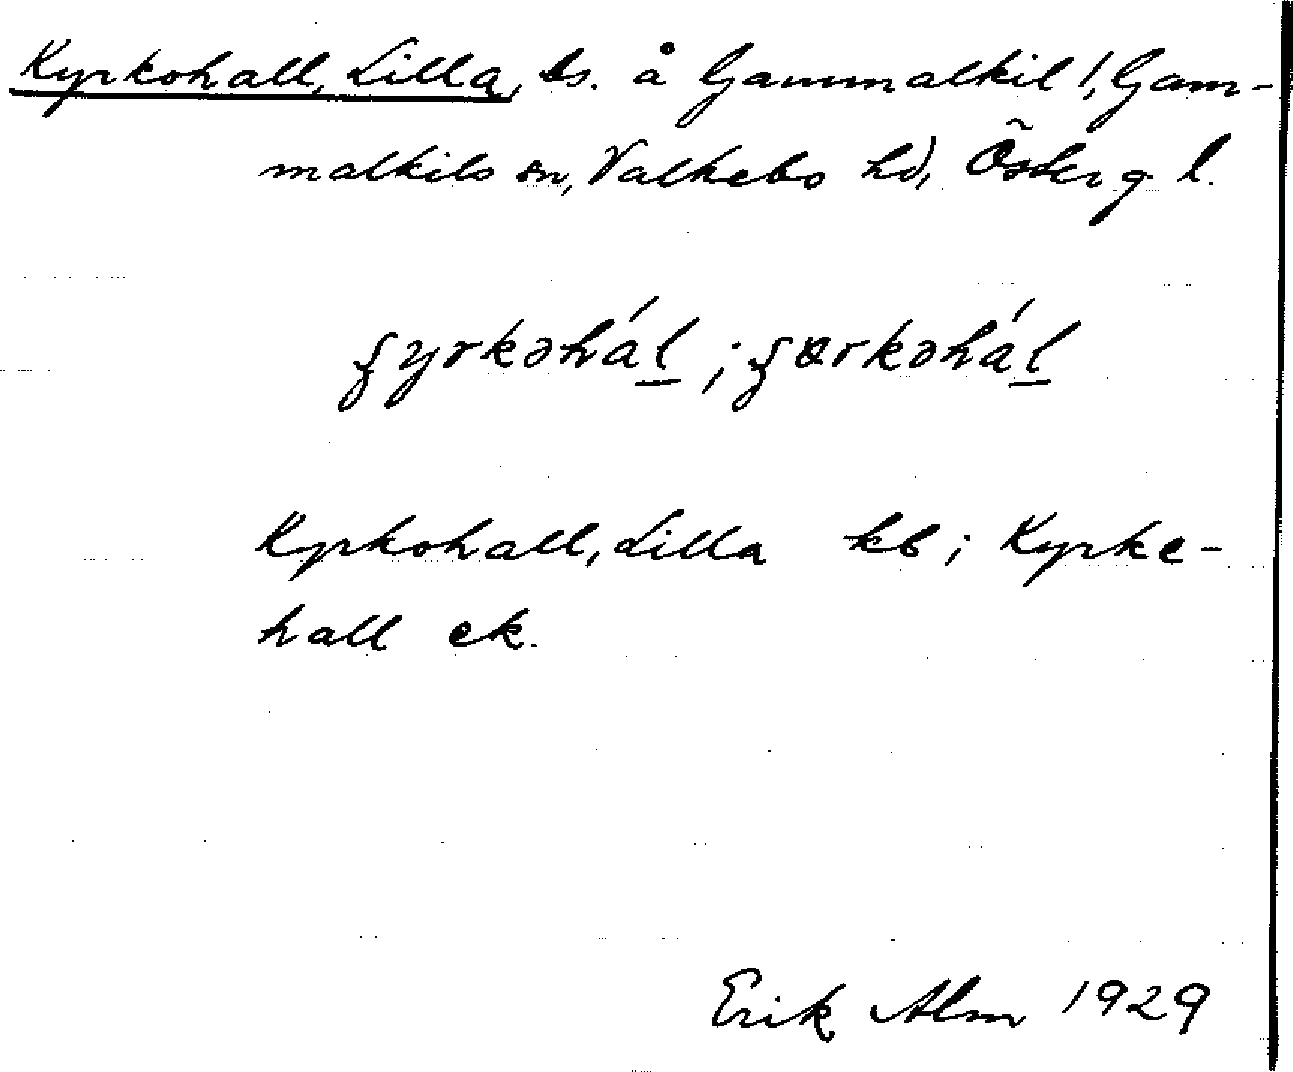 Kyrkohall, Lilla, bs. å Gammalkil!, Gam-
malkils sn, Valkebo hd, Österg l.
ʂyrkəhál; ʂærkəhál
Kyrkohall, Lilla kb; Kyrke-
hall ek.
Erik Alm 1929